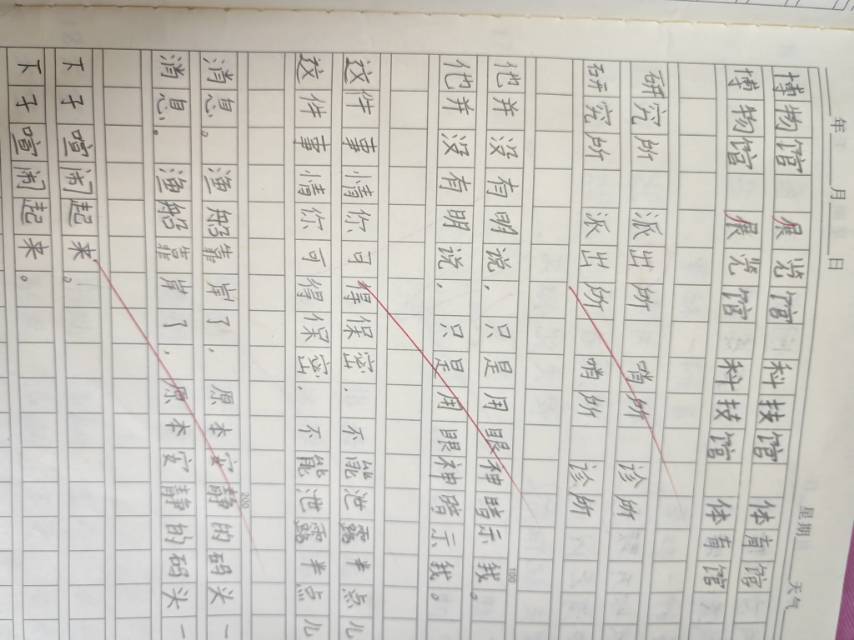 年 月 日 星期 天气
博物馆 展览馆 科技馆 体育馆
博物馆 展览馆 科技馆 体育馆
研究所 派出所 哨所 诊所
研究所 派出所 哨所 诊所
他并没有明说，只是用眼神暗示我。
100
他并没有明说，只是用眼神暗示我。
这件事情你可得保密，不能泄露半点儿
这件事情你可得保密，不能泄露半点儿
200
消息。渔船靠岸了，原本安静的码头一
消息。渔船靠岸了，原本安静的码头一
下子喧闹起来。
下子喧闹起来。